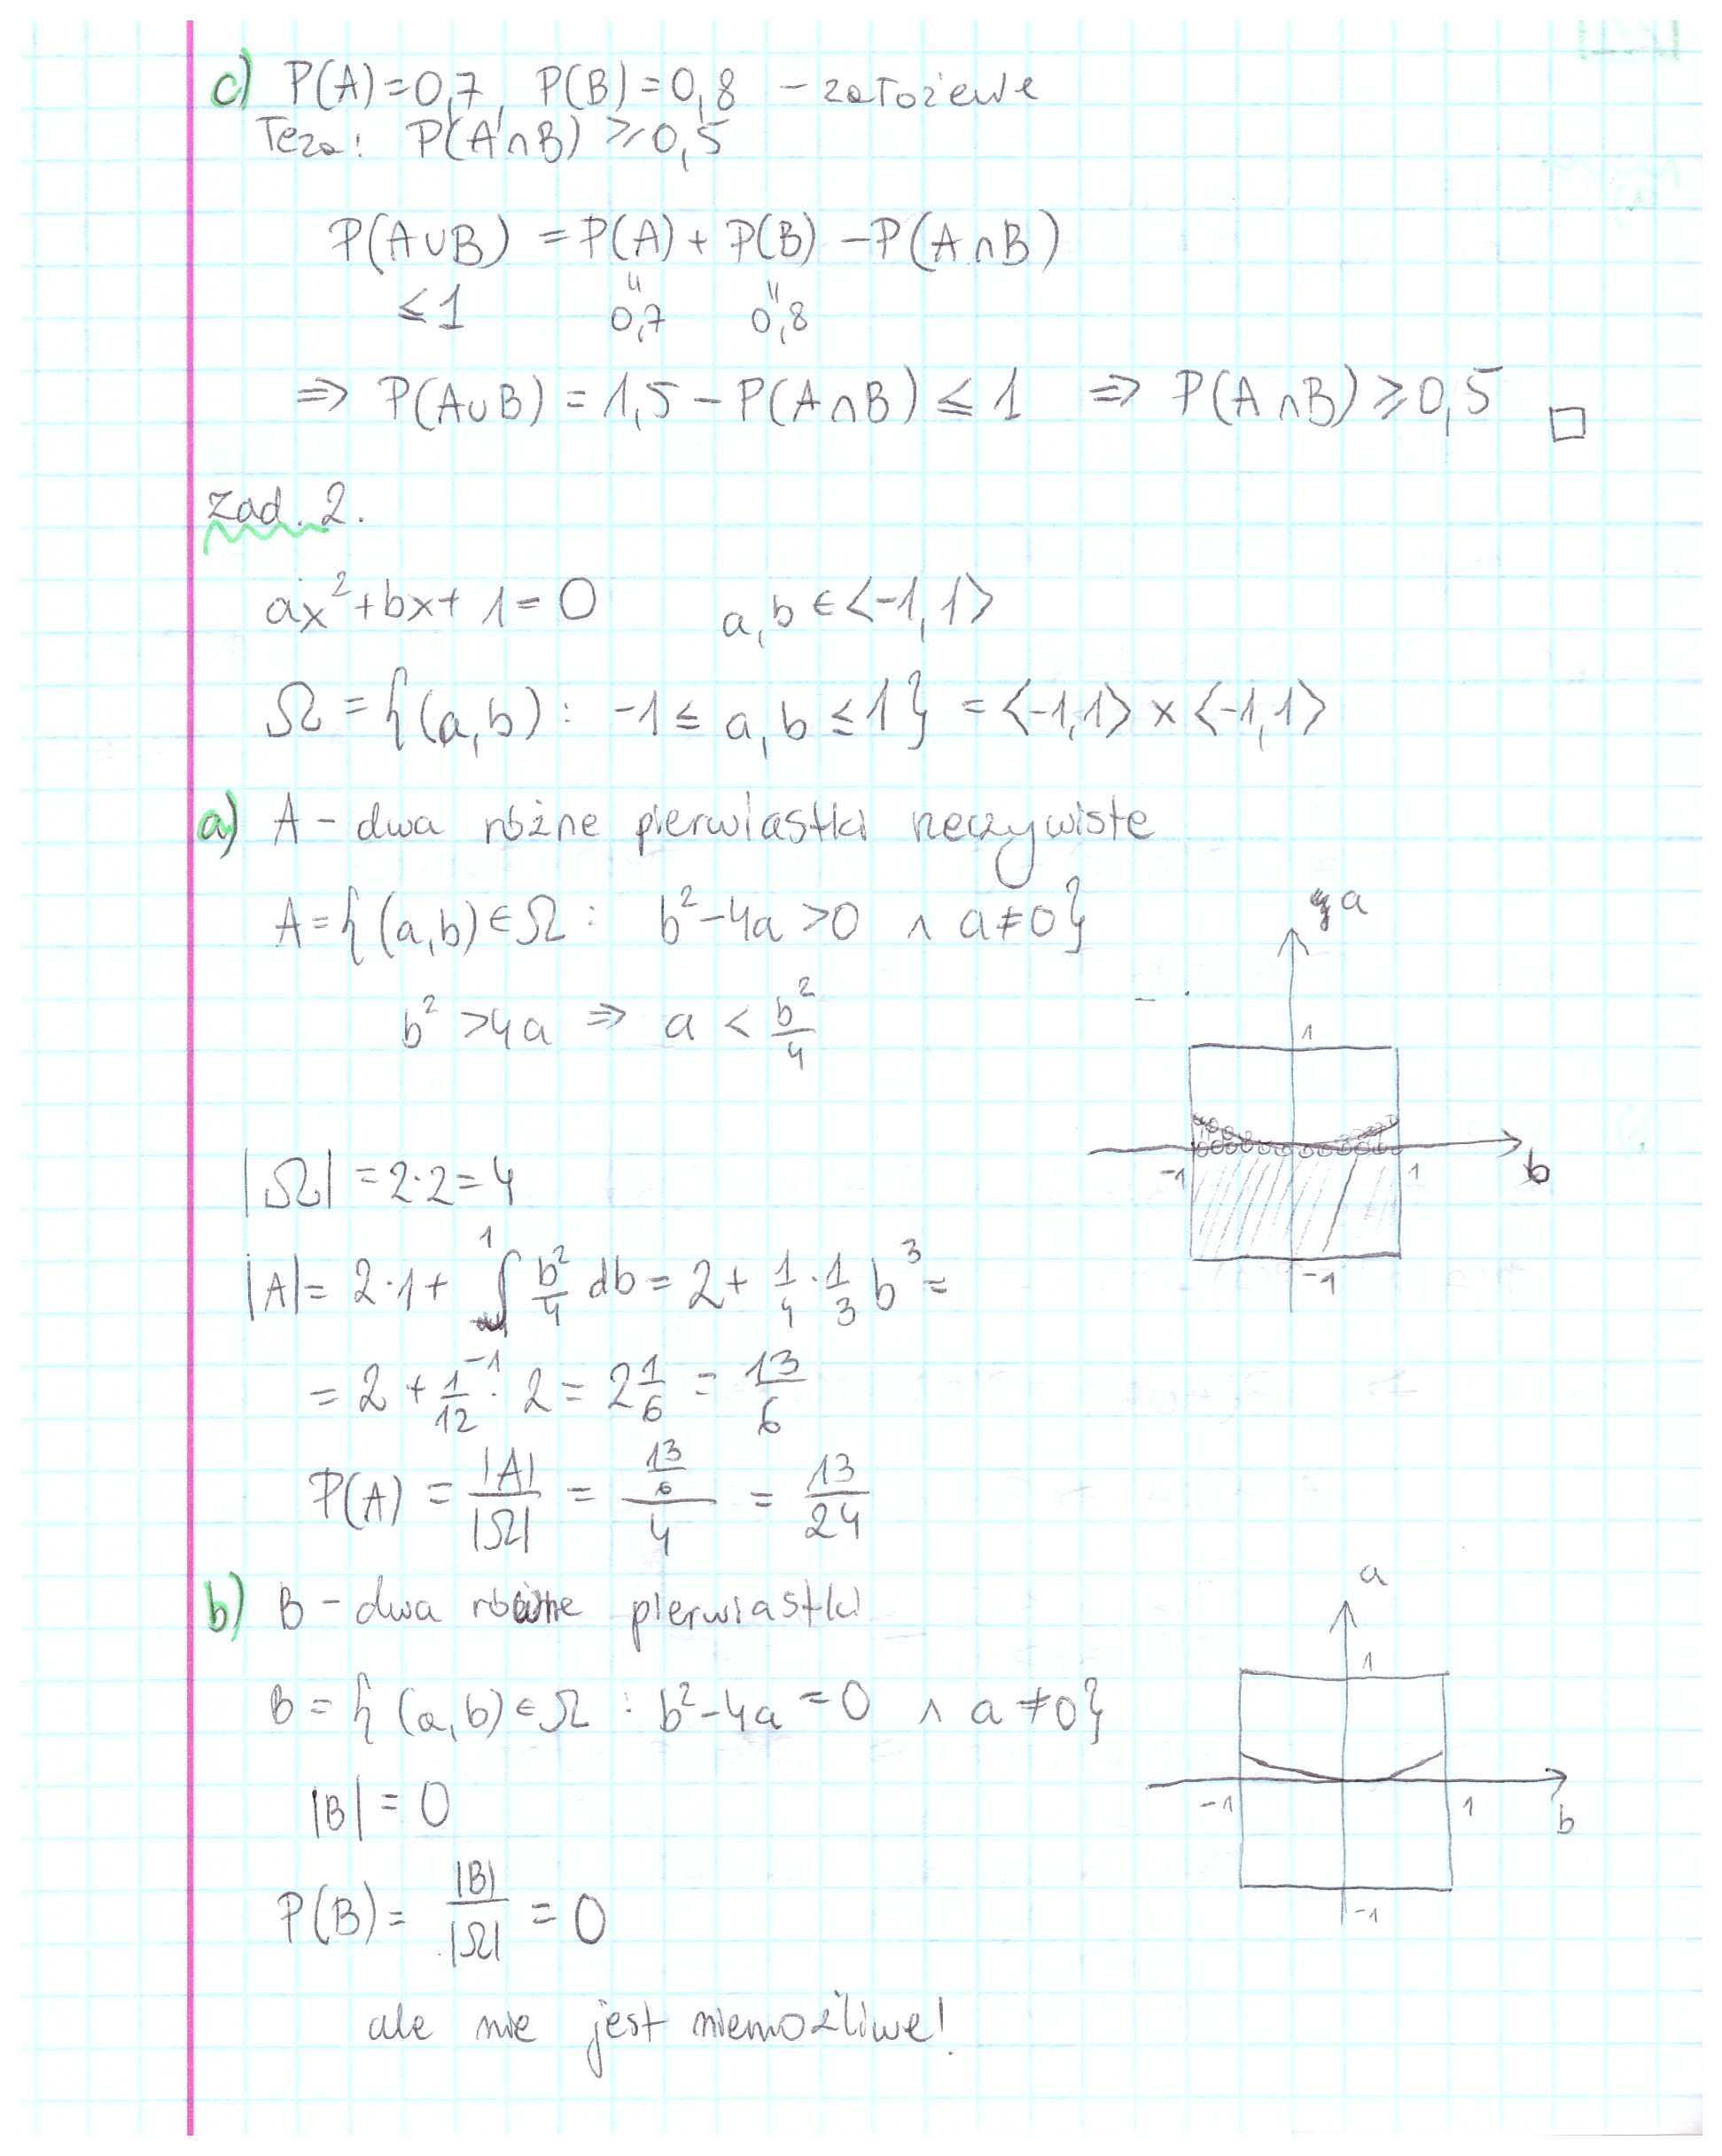 c) P(A)=0,7, P(B)=0,8 - założenie
Teza: P(A∩B) ≥0,5
P(A∪B) = P(A) + P(B) - P(A∩B)
≤1 " 0,7 " 0,8
⇒ P(A∪B) = 1,5 - P(A∩B) ≤ 1 ⇒ P(A∩B) ≥ 0,5 □
Zad. 2.
ax²+bx+1=0 a,b ∈ <-1,1>
Ω = {(a,b) : -1 ≤ a,b ≤ 1} = <-1,1> × <-1,1>
a) A - dwa różne pierwiastki rzeczywiste
A = {(a,b) ∈ Ω : b²-4a >0 ∧ a≠0}
b² >4a ⇒ a < b²/4
a
1
-1
1
b
-1
|Ω| = 2·2 = 4
|A| = 2·1 + ∫_{-1}^{1} b²/4 db = 2 + 1/4 · 1/3 b³ =
= 2 + 1/12 · 2 = 2 1/6 = 13/6
P(A) = |A|/|Ω| = (13/6)/4 = 13/24
b) B - dwa równe pierwiastki
B = {(a,b) ∈ Ω : b²-4a = 0 ∧ a ≠ 0}
|B| = 0
P(B) = |B|/|Ω| = 0
a
1
-1
1
b
-1
ale nie jest niemożliwe!